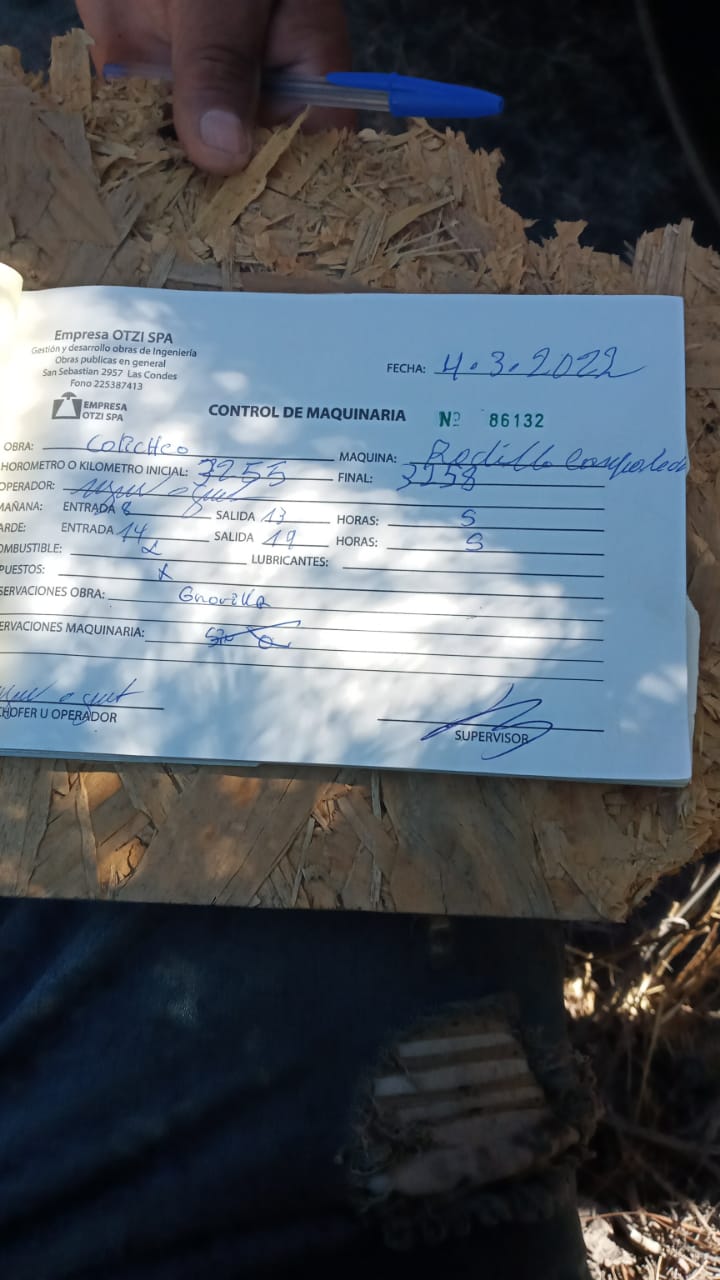 Empresa OTZI SPA
Gestión y desarrollo obras de Ingeniería
Obras publicas en general
San Sebastian 2957 Las Condes
Fono 225387413
EMPRESA
OTZI SPA
FECHA: 4.3.2022
CONTROL DE MAQUINARIA Nº 86132
OBRA: MAQUINA: Rodillo
HOROMETRO O KILOMETRO INICIAL: 3255 FINAL: 3258
OPERADOR:
MAÑANA: ENTRADA 8 SALIDA 13 HORAS: 5
ARDE: ENTRADA 14 SALIDA 19 HORAS: 5
OMBUSTIBLE: LUBRICANTES:
PUESTOS: x
SERVACIONES OBRA:
ERVACIONES MAQUINARIA:
CHOFER U OPERADOR
SUPERVISOR